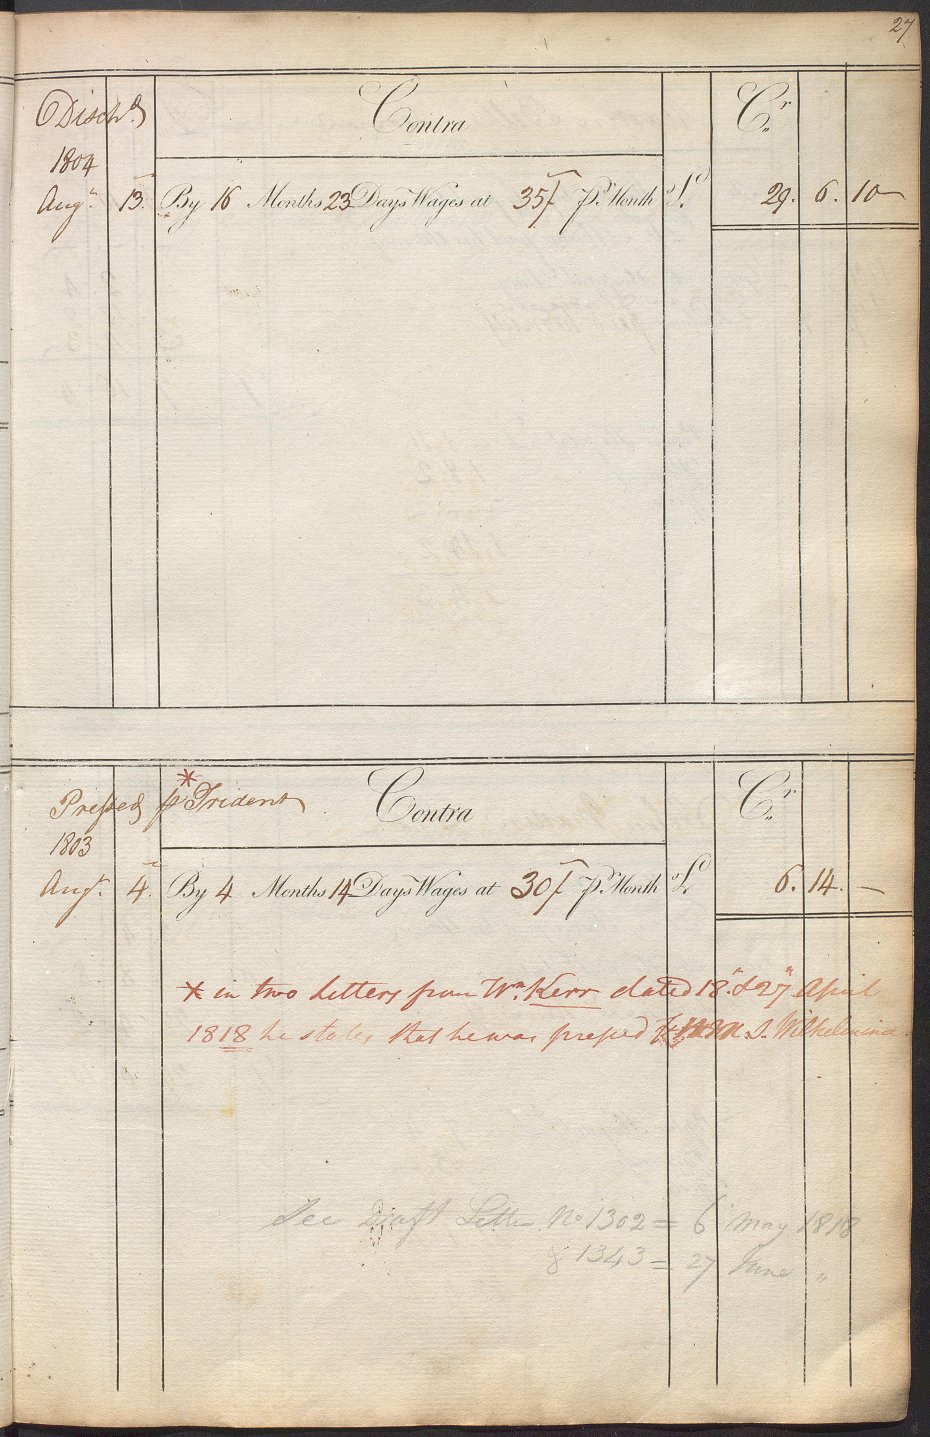 27
Disch.d Contra Cr.
1804
Aug.t 13. By 16 Months 23 Days Wages at 35/ p.r Month £ 29. 6. 10
Pressed p * Trident Contra Cr.
1803
Aug.t 4. By 4 Months 14 Days Wages at 30/ p.r Month £ 6. 14. —
* in two letters from Wm. Kerr dated 18. & 27 April
1818 he states that he was pressed H. M. S. Wilhelmina
See Draft Letter No 1302 = 6 May 1818
& 1343 = 27 June "